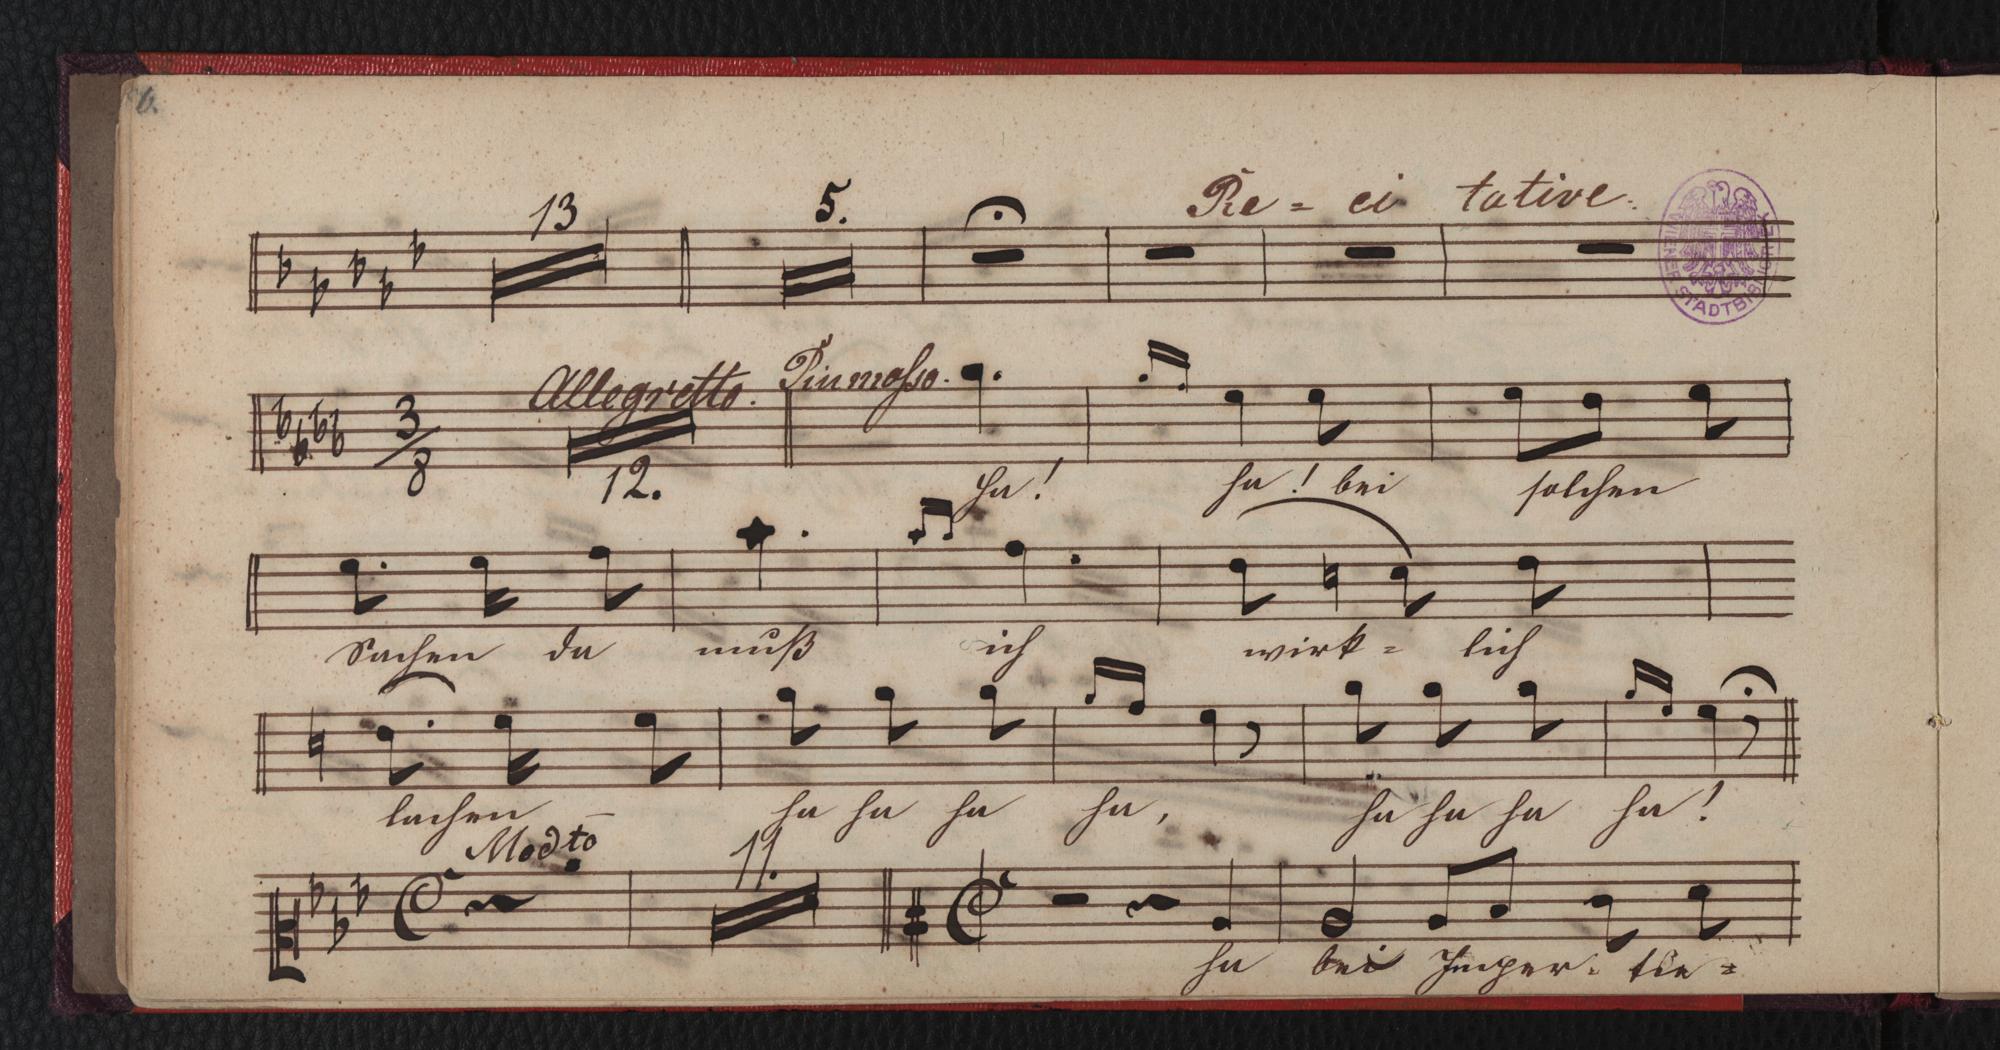 6.
13 5. Re = ci tative.
WIENER STADTBIBLIOTHEK
Allegretto. Piu mosso.
3/8 12. ha! ha! bei solchen
Sachen da muß ich wirk = lich
lachen – ha ha ha ha, ha ha ha ha!
Modto 11.
ha bei Imper - tie =